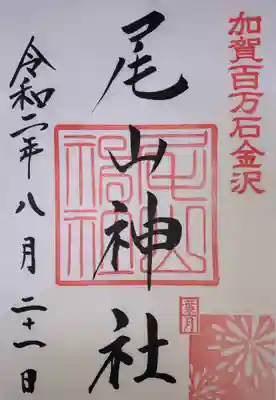 加賀百万石金沢
尾山神社
尾山神社
葉月
令和二年八月二十一日